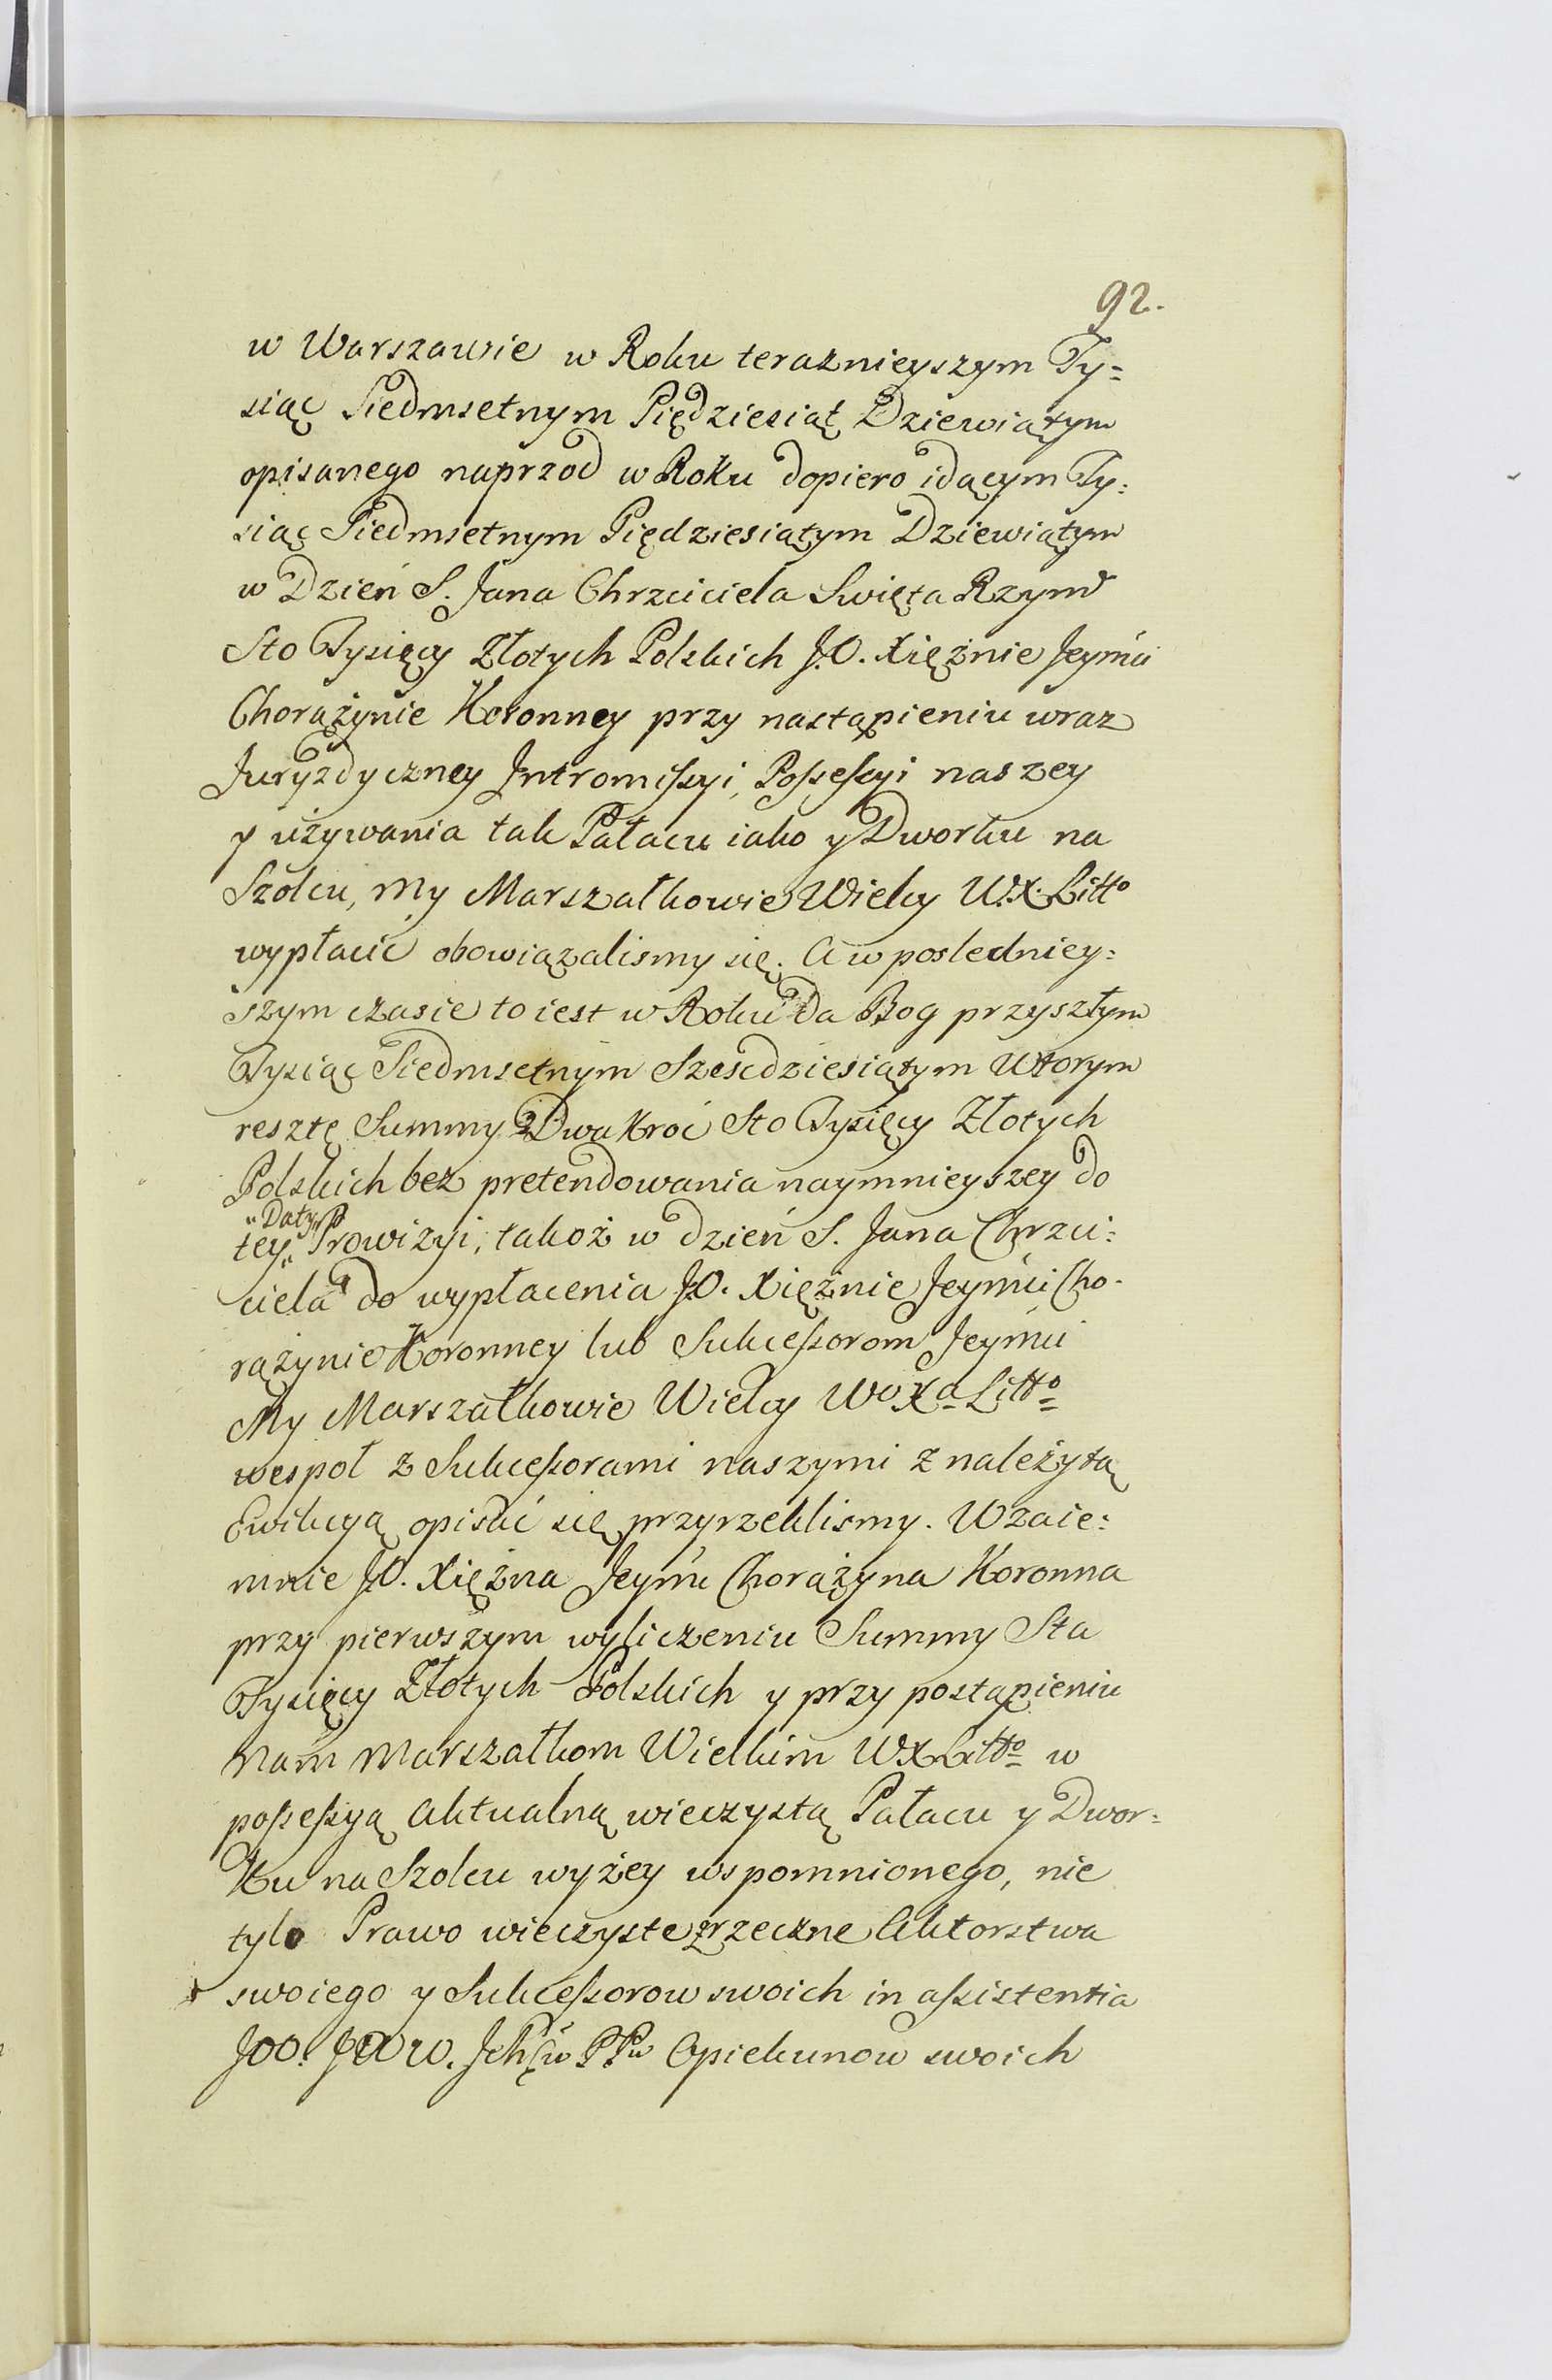 92.
w Warszawie w Roku teraznieyszym Ty=
siąc Siedmsetnym Piędziesiąt Dziewiątym
opisanego naprzod w Roku dopiero idącym Ty=
siąc Siedmsetnym Piędziesiątym Dziewiątym
w Dzień S. Jana Chrzciciela Swięta Rzym
Sto Tysięcy Złotych Polskich J.O. Xiężnie Jeymći
Chorążynie Koronney przy nastąpieniu wraz
Juryzdyczney Intromissyi, Possessyi naszey
y używania tak Pałacu iako y Dworku na
Szolcu, My Marszałkowie Wielcy W.X. Litto
wypłacić obowiązalismy się. A w posledniey=
szym czasie to iest w Roku da Bog przyszłym
Tysiąc Siedmsetnym Szescdziesiątym Wtorym
resztę Summy Dwakroć Sto Tysięcy Złotych
Polskich bez pretendowania naymnieyszey do
"Daty
tey" Prowizyi, takoż w dzień S. Jana Chrzci=
ciela do wypłacenia J.O. Xiężnie Jeymći Cho-
rążynie Koronney lub Sukcessorom Jeymći
My Marszałkowie Wielcy Wo Xa Litto
wespoł z Sukcessorami naszymi z należytą
Ewikcyą opisać się przyrzeklismy. Wzaie=
mnie J.O. Xiężna Jeymć Chorążyna Koronna
przy pierwszym wyliczeniu Summy Sta
Tysięcy Złotych Polskich y przy postąpieniu
Nam Marszałkom Wielkim WX Litto w
possessyą Aktualną wieczystą Pałacu y Dwor=
ku na Szolcu wyżey wspomnionego, nie
tylo Prawo wieczyste zrzeczne Aktorstwa
swoiego y Sukcessorow swoich in assistentia
JOO. JWW. Jchćiw PPw Opiekunow swoich